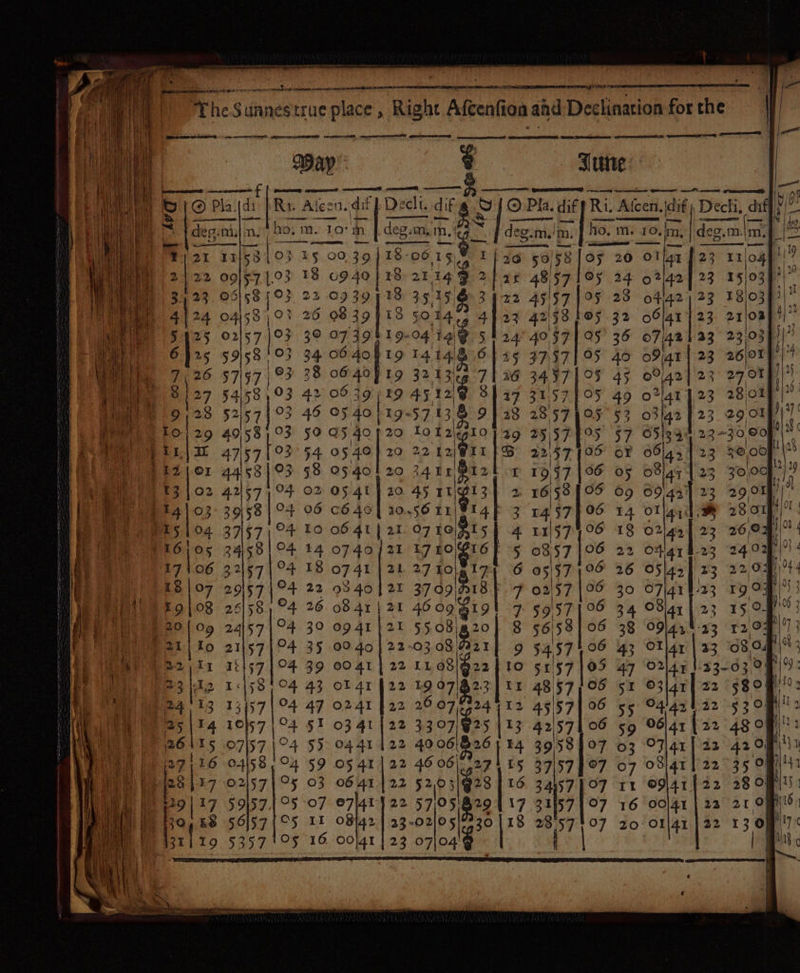 The Sunnes true place, Right Ascension and Declination for the
May June
☉ Pla. di Ri. Ascen. dif Decli. dif ☉ Pla. dif Ri. Ascen. dif Decli, dif
deg. m. m. ho. m. 10' m deg. m. m. deg. m. m. ho. m. 10. m. deg. m. m.
1 21 11 58 03 15 00 39 18 06 15 1 20 50 58 05 20 01 41 23 11 04
2 22 09 57 03 18 09 40 18 21 14 2 21 48 57 05 24 02 42 23 15 03
3 23 06 58 03 22 09 39 18 35 15 3 22 45 57 05 28 04 42 23 18 03
4 24 04 58 03 26 08 39 18 50 14 4 23 42 58 05 32 06 41 23 21 02
5 25 02 57 03 30 07 39 19 04 14 5 24 40 57 05 36 07 42 23 23 03
6 25 59 58 03 34 06 40 19 14 14 6 25 37 57 05 40 09 41 23 26 01
7 26 57 57 03 38 06 40 19 32 13 7 26 34 57 05 45 00 42 23 27 01
8 27 54 58 03 42 06 39 19 45 12 8 27 31 57 05 49 02 41 23 28 01
9 28 52 57 03 46 05 40 19 57 13 9 28 28 57 05 53 03 42 23 29 01
10 29 49 58 03 50 05 40 20 10 12 10 29 25 57 05 57 05 39 23 30 00
11 ♊ 47 57 03 54 05 40 20 22 12 11 ♋ 22 57 06 01 06 42 23 30 00
12 01 44 58 03 58 05 40 20 34 11 12 1 19 57 06 05 08 41 23 30 00
13 02 42 57 04 02 05 41 20 45 11 13 2 16 58 06 09 09 42 23 29 01
14 03 39 58 04 06 06 40 20 56 11 14 3 14 57 06 14 01 41 23 28 01
15 04 37 57 04 10 06 41 21 07 10 15 4 11 57 06 18 02 42 23 26 02
16 05 34 58 04 14 07 40 21 17 10 16 5 08 57 06 22 04 41 23 24 02
17 06 32 57 04 18 07 41 21 27 10 17 6 05 57 06 26 05 42 23 22 03
18 07 29 57 04 22 08 40 21 37 09 18 7 02 57 06 30 07 41 23 19 03
19 08 26 58 04 26 08 41 21 46 09 19 7 59 57 06 34 08 41 23 15 0
20 09 24 57 04 30 09 41 21 55 08 20 8 56 58 06 38 09 42 23 12 03
21 10 21 57 04 35 00 40 22 03 08 21 9 54 57 06 43 01 41 23 08 0
22 11 18 57 04 39 00 41 22 11 08 22 10 51 57 06 47 02 41 23 03 0
23 12 15 58 04 43 01 41 22 19 07 23 11 48 57 06 51 03 41 22 58 0
24 13 13 57 04 47 02 41 22 26 07 24 12 45 57 06 55 04 42 22 53 0
25 14 10 57 04 51 03 41 22 33 07 25 13 42 57 06 59 06 41 22 48 0
26 15 07 57 04 55 04 41 22 40 06 26 14 39 58 07 03 07 41 22 42 0
27 16 04 58 04 59 05 41 22 46 06 27 15 37 57 07 07 08 41 22 35 0
28 17 02 57 05 03 06 41 22 52 03 28 16 34 57 07 11 09 41 22 28 0
29 17 59 57 05 07 07 41 22 57 05 29 17 31 57 07 16 00 41 22 21 0
30 18 56 57 05 11 08 42 23 02 05 30 18 28 57 07 20 01 41 22 13 0
31 19 53 57 05 16 00 41 23 07 04